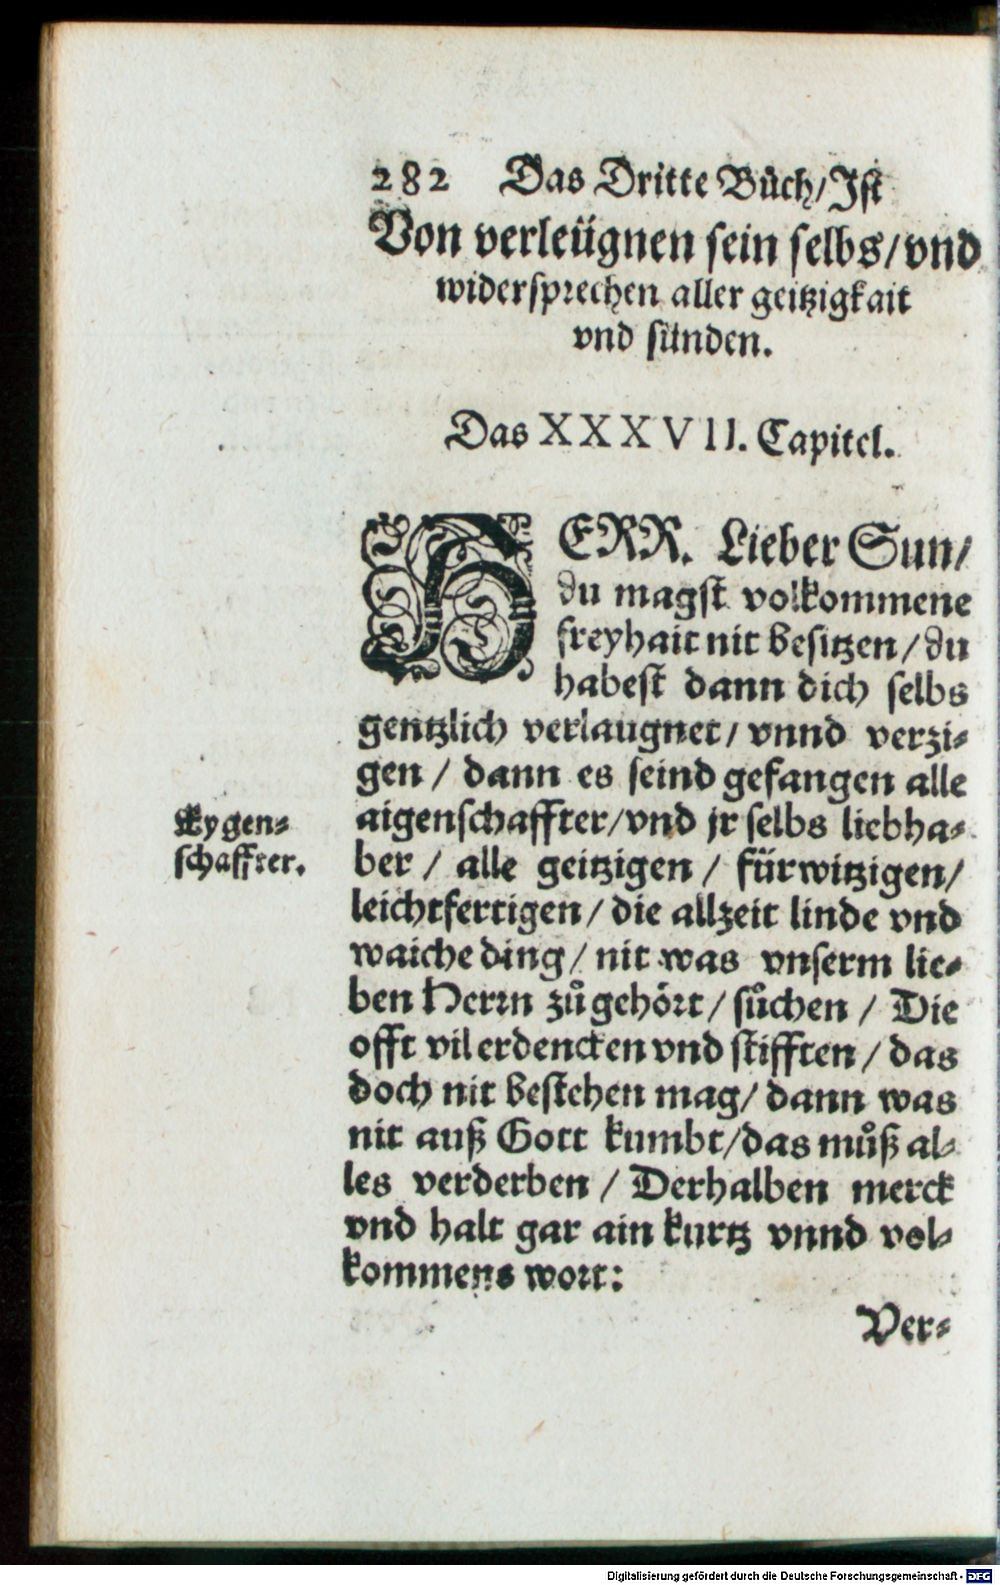 282 Das Dritte Bůch/ Ist
Von verleügnen sein selbs/ vnd
widersprechen aller geitzigkait
vnd sünden.
Das XXXVII. Capitel.
HERR. Lieber Sun/
du magst volkommene
freyhait nit besitzen/ du
habest dann dich selbs
gentzlich verlaugnet/ vnnd verzi-
gen/ dann es seind gefangen alle
aigenschaffter/ vnd jr selbs liebha-
Aygen-
schaffter.
ber/ alle geitzigen/ fürwitzigen/
leichtfertigen/ die allzeit linde vnd
waiche ding/ nit was vnserm lie-
ben Herrn zů gehört/ sůchen/ Die
offt vil erdencken vnd stifften/ das
doch nit bestehen mag/ dann was
nit auß Gott kumbt/ das můß al-
les verderben/ Derhalben merck
vnd halt gar ain kurtz vnnd vol-
kommens wort:
Ver-
Digitalisierung gefördert durch die Deutsche Forschungsgemeinschaft - DFG